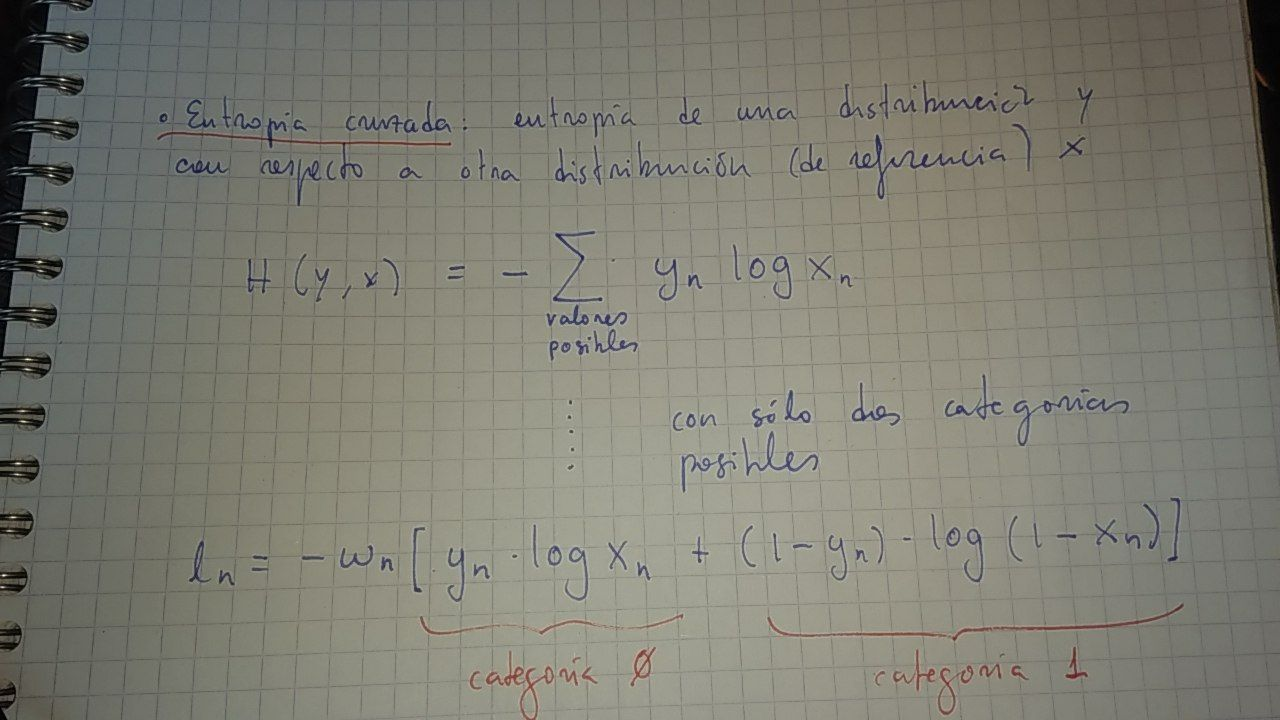 • Entropía cruzada: entropía de una distribución y
con respecto a otra distribución (de referencia) x
H (y, x) = - ∑ yn log xn
valores
posibles
⋮ con sólo dos categorías
posibles
ln = -wn [ yn · log xn + (1 - yn) · log (1 - xn) ]
categoría 0 categoría 1